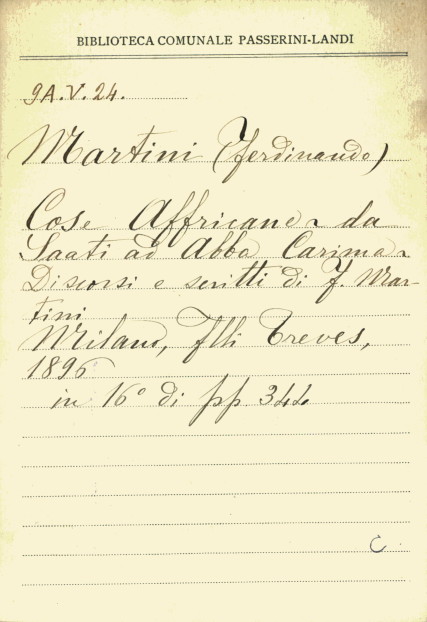 BIBLIOTECA COMUNALE PASSERINI-LANDI
9A.V.24.
Martini (Ferdinando)
Cose Affricane ~ da
Saati ad Abba Carima ~
Discorsi e scritti di F. Mar-
tini
Milano, flli Treves,
1896
in 16° di pp 344
C